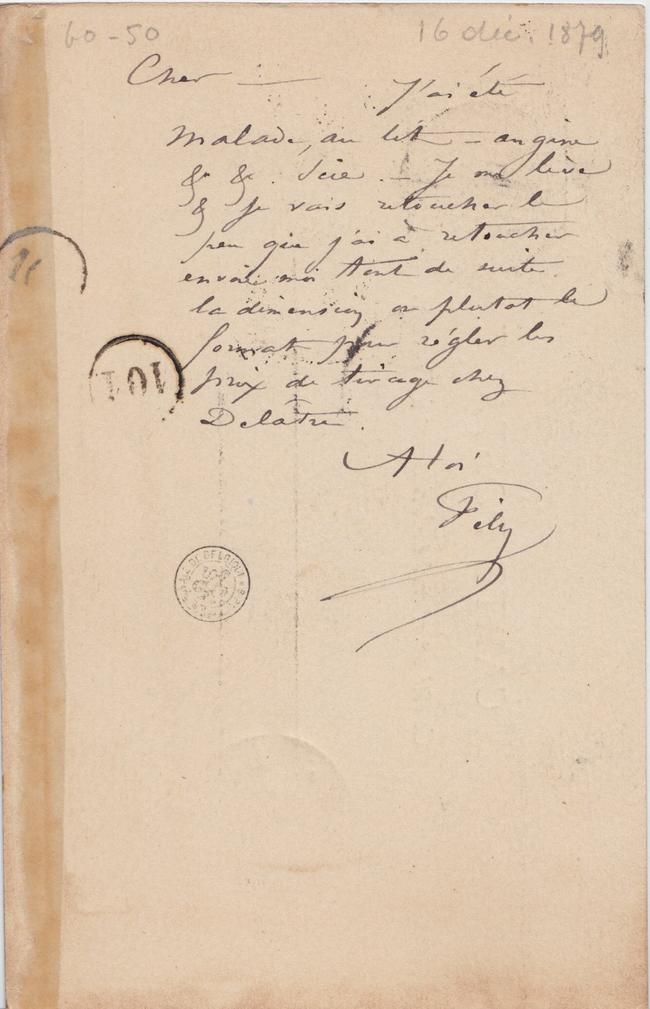 60-50
16 déc. 1879
Cher — J'ai été
malade, au lit — angine
& & . Scie. — Je me lève
& je vais retoucher le
peu que j'ai à retoucher
envoie moi tout de suite
la dimension ou plutot le
format pour régler les
prix de tirage chez
Delâtre.
A toi
Fély
101